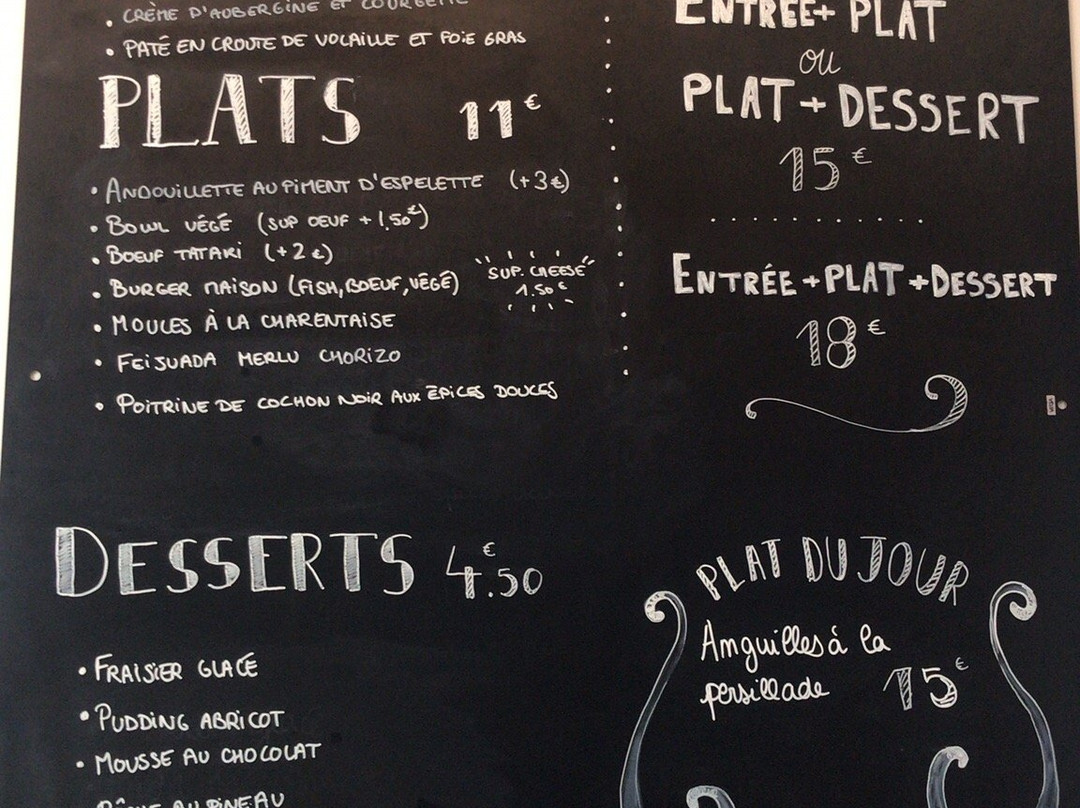 • CRÈME D'AUBERGINE ET COURGETTE
• PATÉ EN CROUTE DE VOLAILLE ET FOIE GRAS
PLATS 11€
• ANDOUILLETTE AU PIMENT D'ESPELETTE (+3€)
• BOWL VÉGÉ (SUP OEUF +1,50€)
• BOEUF TATAKI (+2€)
• BURGER MAISON (FISH, BOEUF, VÉGÉ)
SUP. CHEESE
1.50€
• MOULES À LA CHARENTAISE
• FEIJUADA MERLU CHORIZO
• POITRINE DE COCHON NOIR AUX ÉPICES DOUCES
DESSERTS 4.50€
• FRAISIER GLACÉ
• PUDDING ABRICOT
• MOUSSE AU CHOCOLAT
AU PINEAU
ENTRÉE + PLAT
ou
PLAT + DESSERT
15€
ENTRÉE + PLAT + DESSERT
18€
PLAT DU JOUR
Anguilles à la
persillade 15€